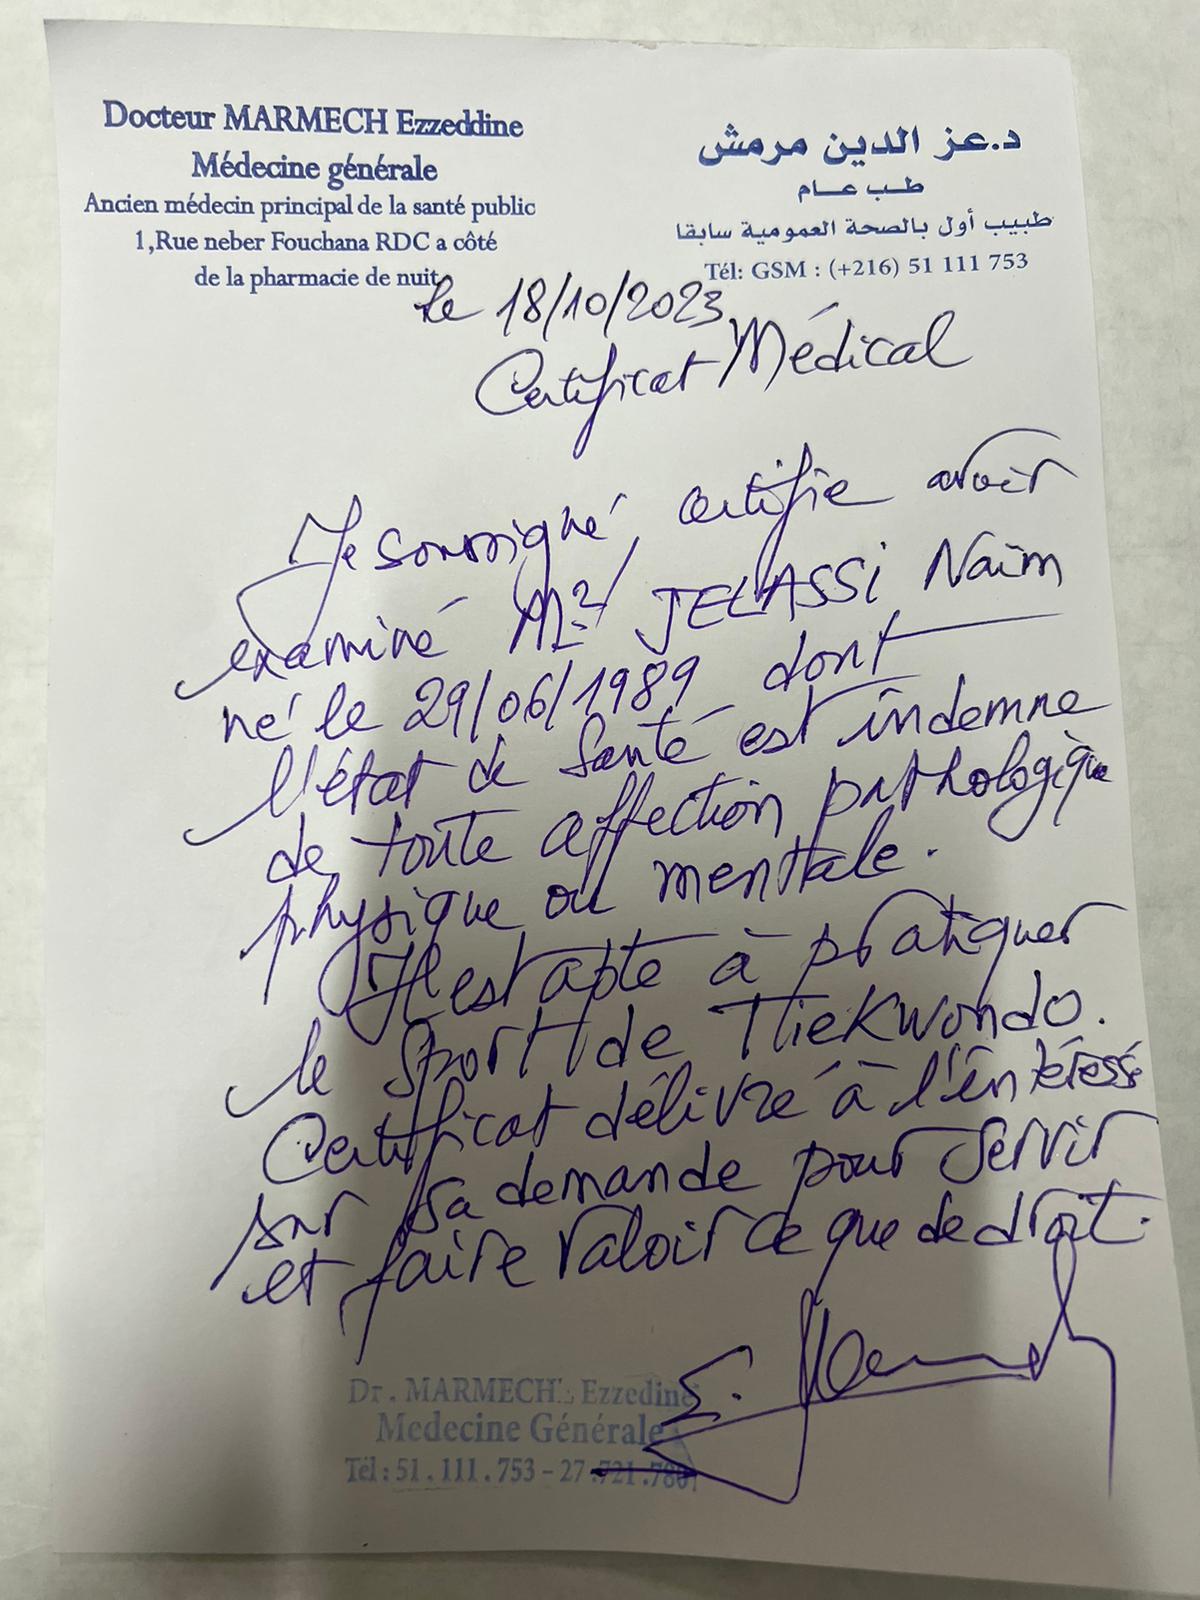 Docteur MARMECH Ezzeddine
Médecine générale
Ancien médecin principal de la santé public
1,Rue neber Fouchana RDC a côté
de la pharmacie de nuit
د.عز الدين مرمش
طب عام
طبيب أول بالصحة العمومية سابقا
Tél: GSM : (+216) 51 111 753
le 18/10/2023
Certificat Médical
Je soussigné, certifie avoir
examiné Mr JELASSI Naïm
né le 29/06/1989 dont
l'état de santé est indemne
de toute affection pathologique
physique ou mentale.
Il est apte à pratiquer
le Sport de TaeKwondo.
Certificat délivré à l'intéressé
sur sa demande pour servir
et faire valoir ce que de droit.
Dr. MARMECH Ezzedine
Medecine Générale
Tél : 51 . 111 . 753 - 27 .721 .780